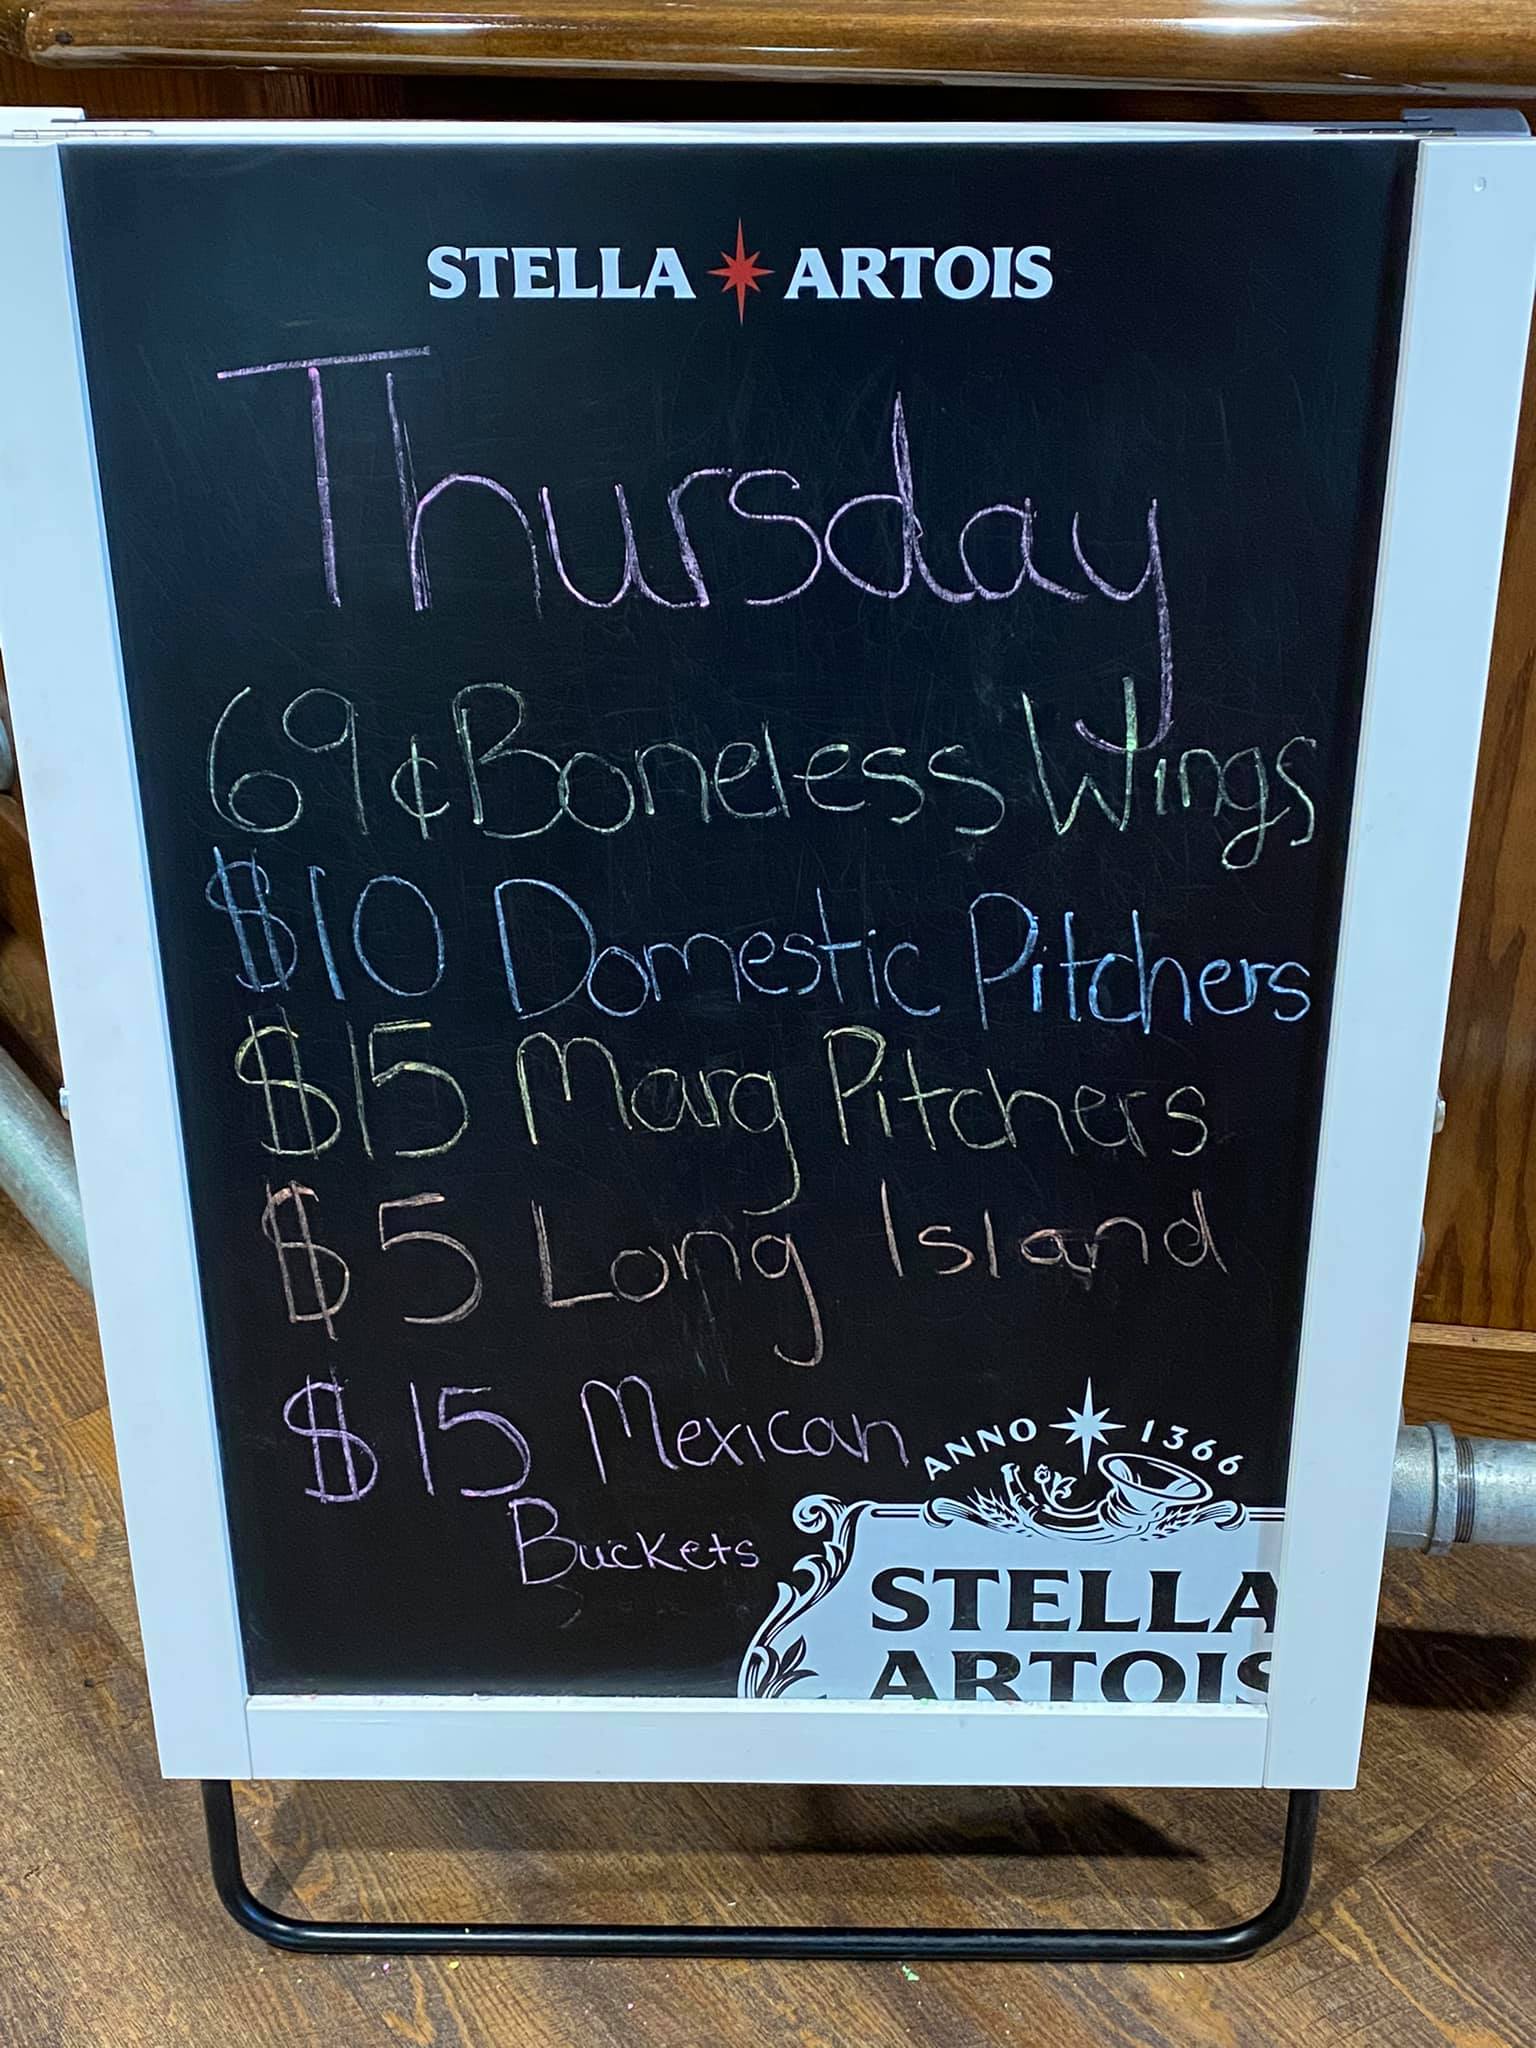 STELLA ARTOIS
Thursday
69¢ Boneless Wings
$10 Domestic Pitchers
$15 Marg Pitchers
$5 Long Island
$15 Mexican
Buckets
ANNO 1366
STELLA
ARTOIS